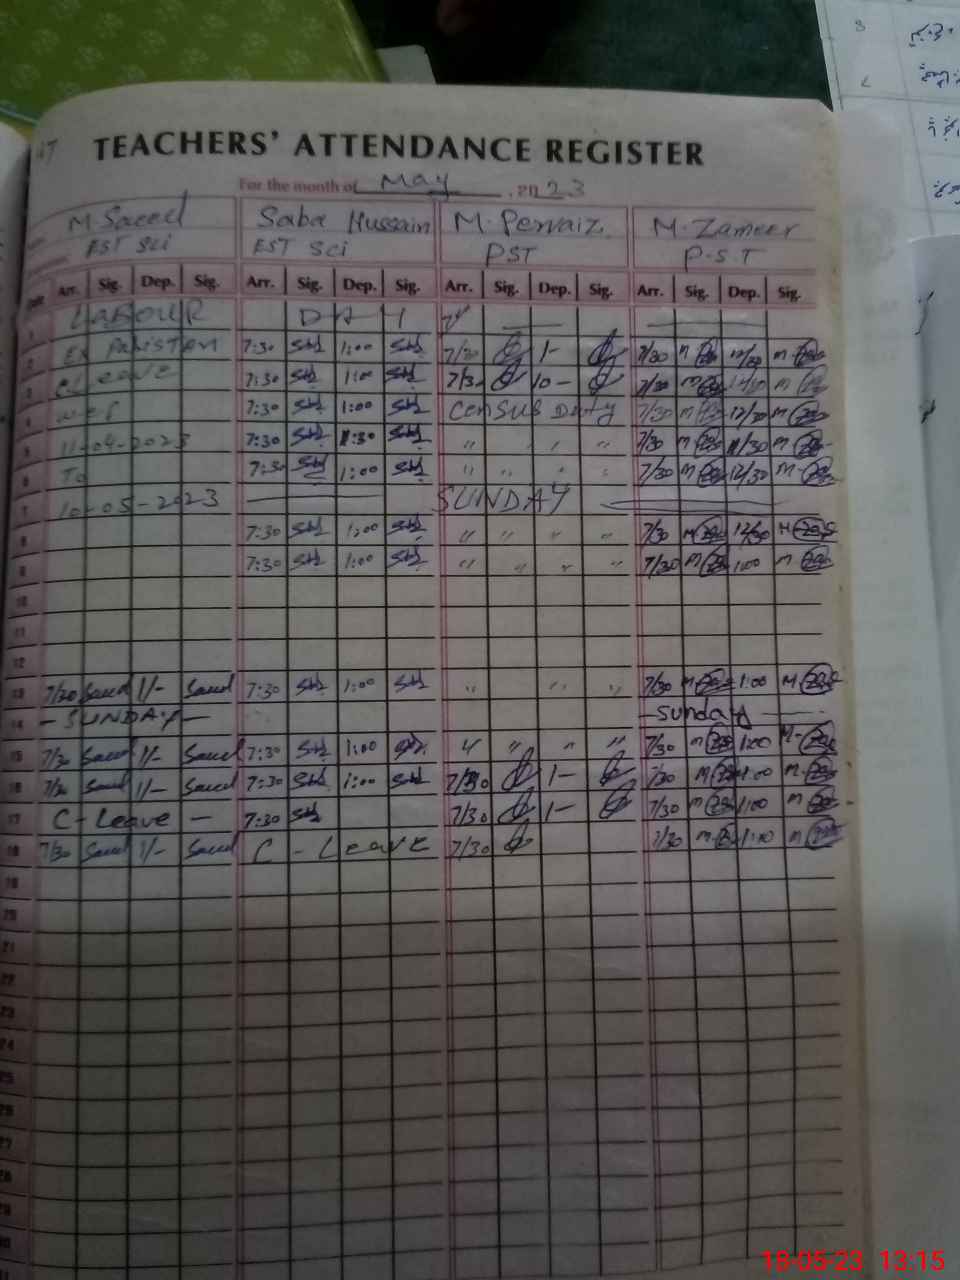 TEACHERS' ATTENDANCE REGISTER
For the month of May , 2023
M. Saeed Saba Hussain M. Pervaiz M. Zameer
EST Sci EST Sci PST P.S.T
Date Arr. Sig. Dep. Sig. Arr. Sig. Dep. Sig. Arr. Sig. Dep. Sig. Arr. Sig. Dep. Sig.
1 LABOUR DAY
2 Ex PAKISTAN 7:30 1:00 7/30 1- 7/30 M 12/30 M
3 LEAVE 7:30 1:00 7/30 10- 7/30 M 12/30 M
4 w.e.f 7:30 1:00 Census Duty 7/30 M 12/30 M
5 11-04-2023 7:30 11:30 " " " " 7/30 M 11/30 M
6 To 7:30 1:00 " " " " 7/30 M 12/30 M
7 10-05-2023 SUNDAY
8 7:30 1:00 " " " " 7/30 M 12/30 M
9 7:30 1:00 " " " " 7/30 M 1:00 M
10
11
12
13 7/30 Saeed 1/- Saeed 7:30 1:00 " " " 7/30 M 1:00 M
14 - SUNDAY - - Sunday -
15 7/30 Saeed 1/- Saeed 7:30 1:00 " " " " 7/30 M 1:00 M
16 7/30 Saeed 1/- Saeed 7:30 1:00 7/30 1- 7/30 M 1:00 M
17 C-Leave - 7:30 7/30 1- 7/30 M 1:00 M
18 7/30 Saeed 1/- Saeed C - Leave 7/30 7/30 M 1:00 M
19
20
21
22
23
24
25
26
27
28
29
30
18-05-23 13:15